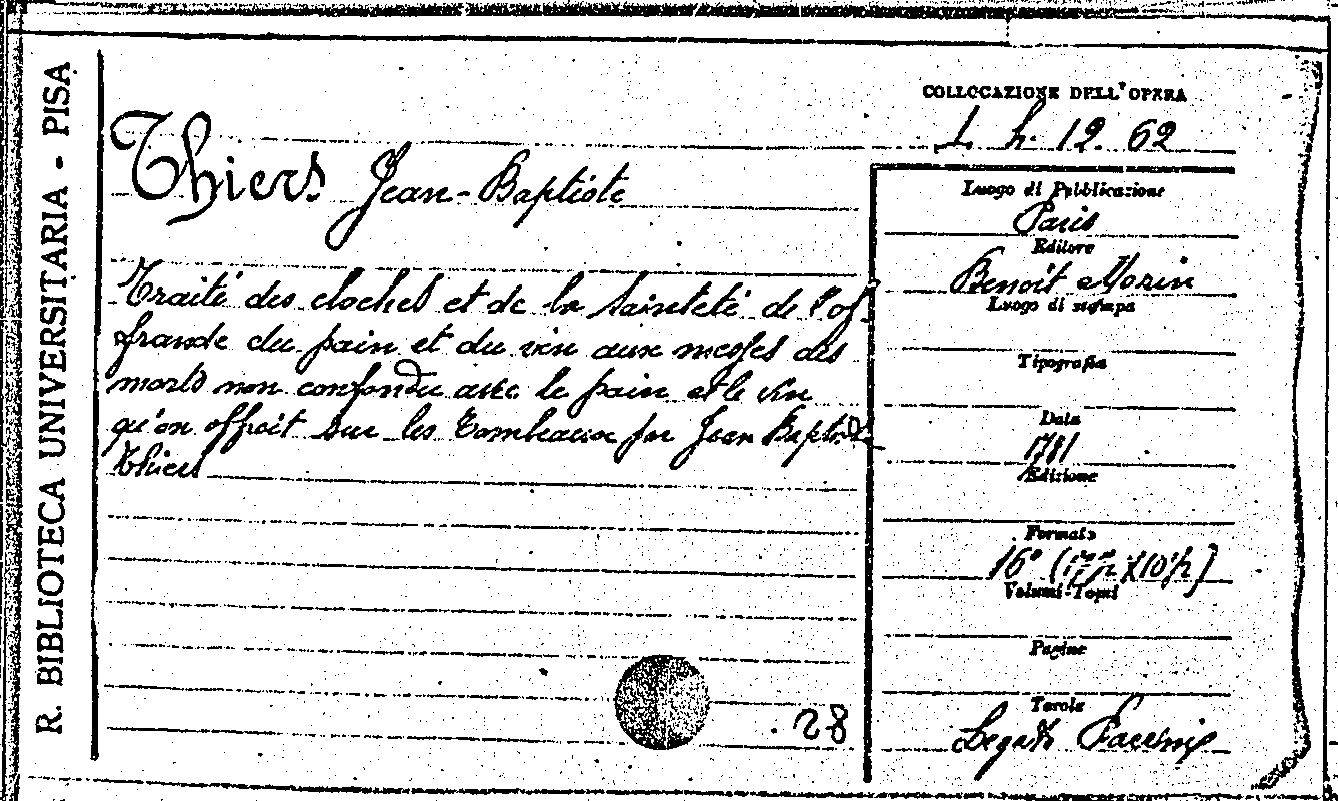 R. BIBLIOTECA UNIVERSITARIA - PISA
COLLOCAZIONE DELL'OPERA
L h. 12. 62
Thiers Jean-Baptiste
Traité des cloches et de la Sainteté de l'of-
frande du pain et du vin aux messes des
morts non confondu avec le pain et le vin
qu'on offroit sur les Tombeaux par Jean Baptiste
Thiers
28
Luogo di Pubblicazione
Paris
Editore
Benoit Morin
Luogo di stampa
Tipografia
Data
1781
Edizione
Formato
16°
Volumi-Tomi
Pagine
Tavole
Legato